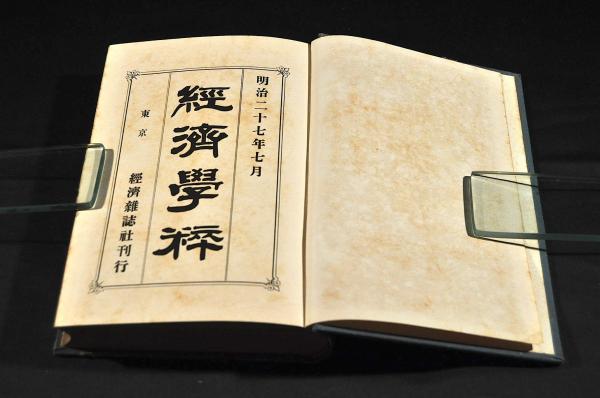 明治二十七年七月
經濟學粹
東京
經濟雜誌社刊行